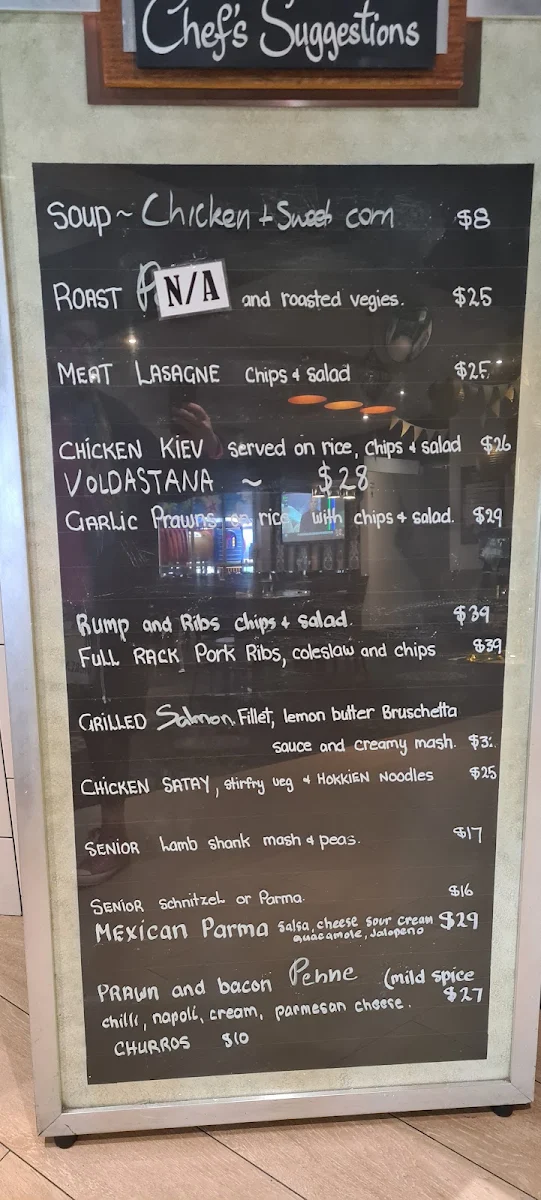 Chef's Suggestions
Soup ~ Chicken + Sweet corn $8
ROAST N/A and roasted vegies. $25
MEAT LASAGNE Chips & Salad $25
CHICKEN KIEV served on rice, Chips & salad $26
VOLDASTANA ~ $28
GARLIC Prawns on rice with chips & salad. $29
Rump and Ribs chips & salad. $39
FULL RACK Pork Ribs, coleslaw and chips $39
GRILLED Salmon Fillet, lemon butter Bruschetta
sauce and creamy mash.
CHICKEN SATAY, stirfry veg & HOKKIEN Noodles $25
SENIOR Lamb shank mash & peas. $17
SENIOR Schnitzel or Parma. $16
Mexican Parma Salsa, cheese sour cream $29
guacamole, Jalopeno
PRAWN and bacon Penne (mild spice
$27
chilli, napoli, cream, parmesan cheese.
CHURROS $10